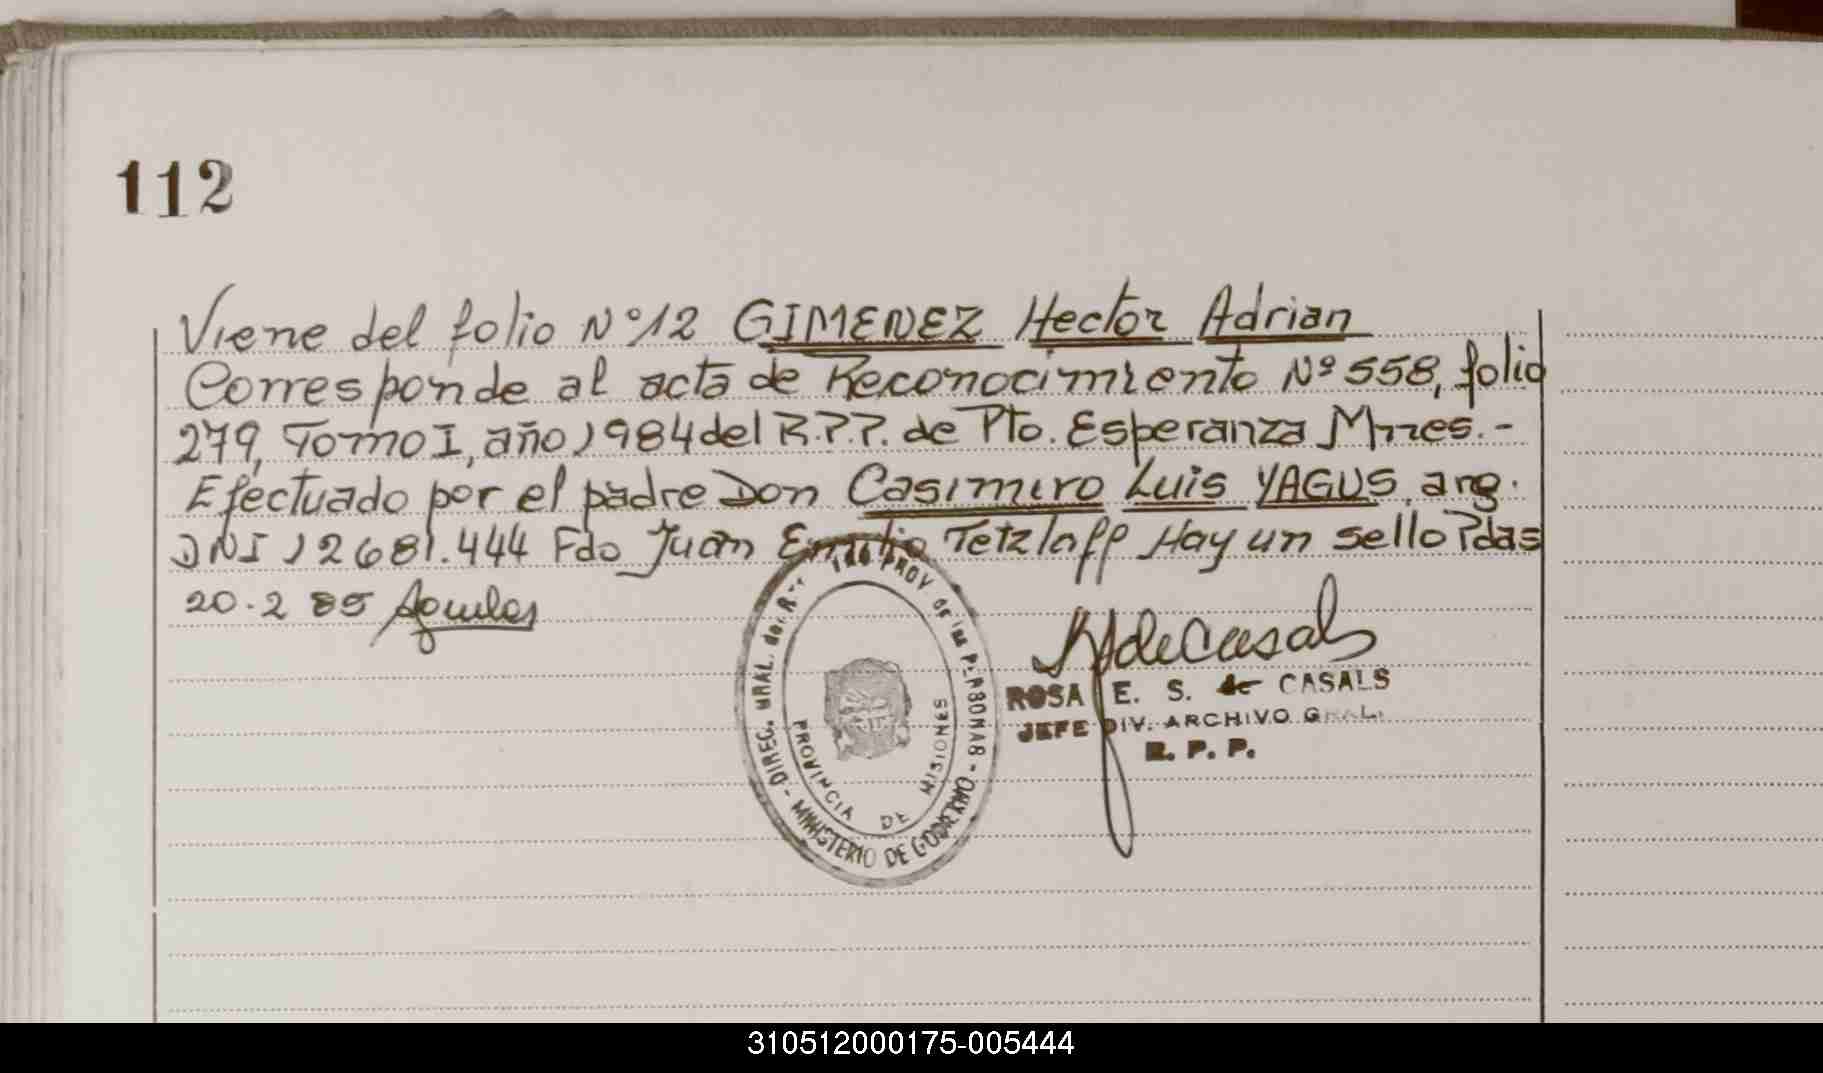 112
Viene del folio Nº 12 GIMENEZ Hector Adrian
Corresponde al acta de Reconocimiento Nº 558, folio
279, Tomo I, año 1984 del R.P.P. de Pto. Esperanza Mnes.-
Efectuado por el padre Don Casimiro Luis YAGUS, arg.
DNI 12681.444 Fdo Juan Emilio Tetzlaff Hay un sello Pdas
20.2 85
DIREC. GRAL. del PROV. de las PERSONAS - MINISTERIO DE GOBIERNO -
PROVINCIA DE MISIONES
ROSA E. S. de CASALS
JEFE DIV. ARCHIVO GRAL.
R. P. P.
310512000175-005444